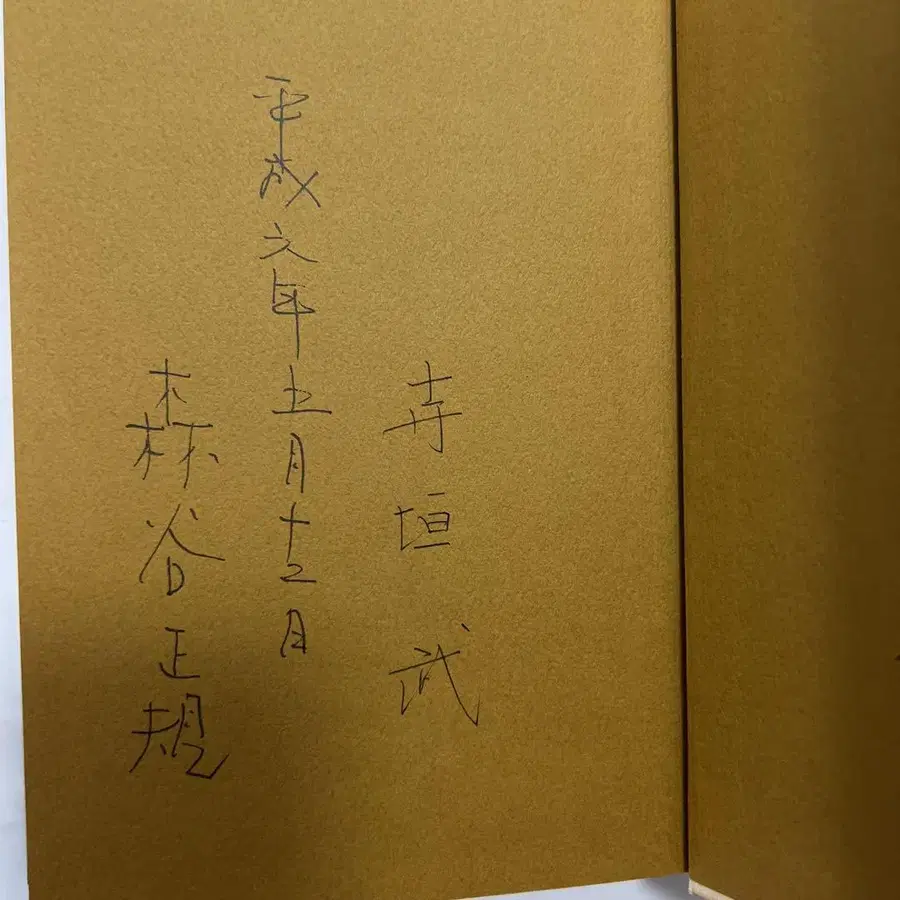 寺垣武
平成六年五月十二日
森谷正規